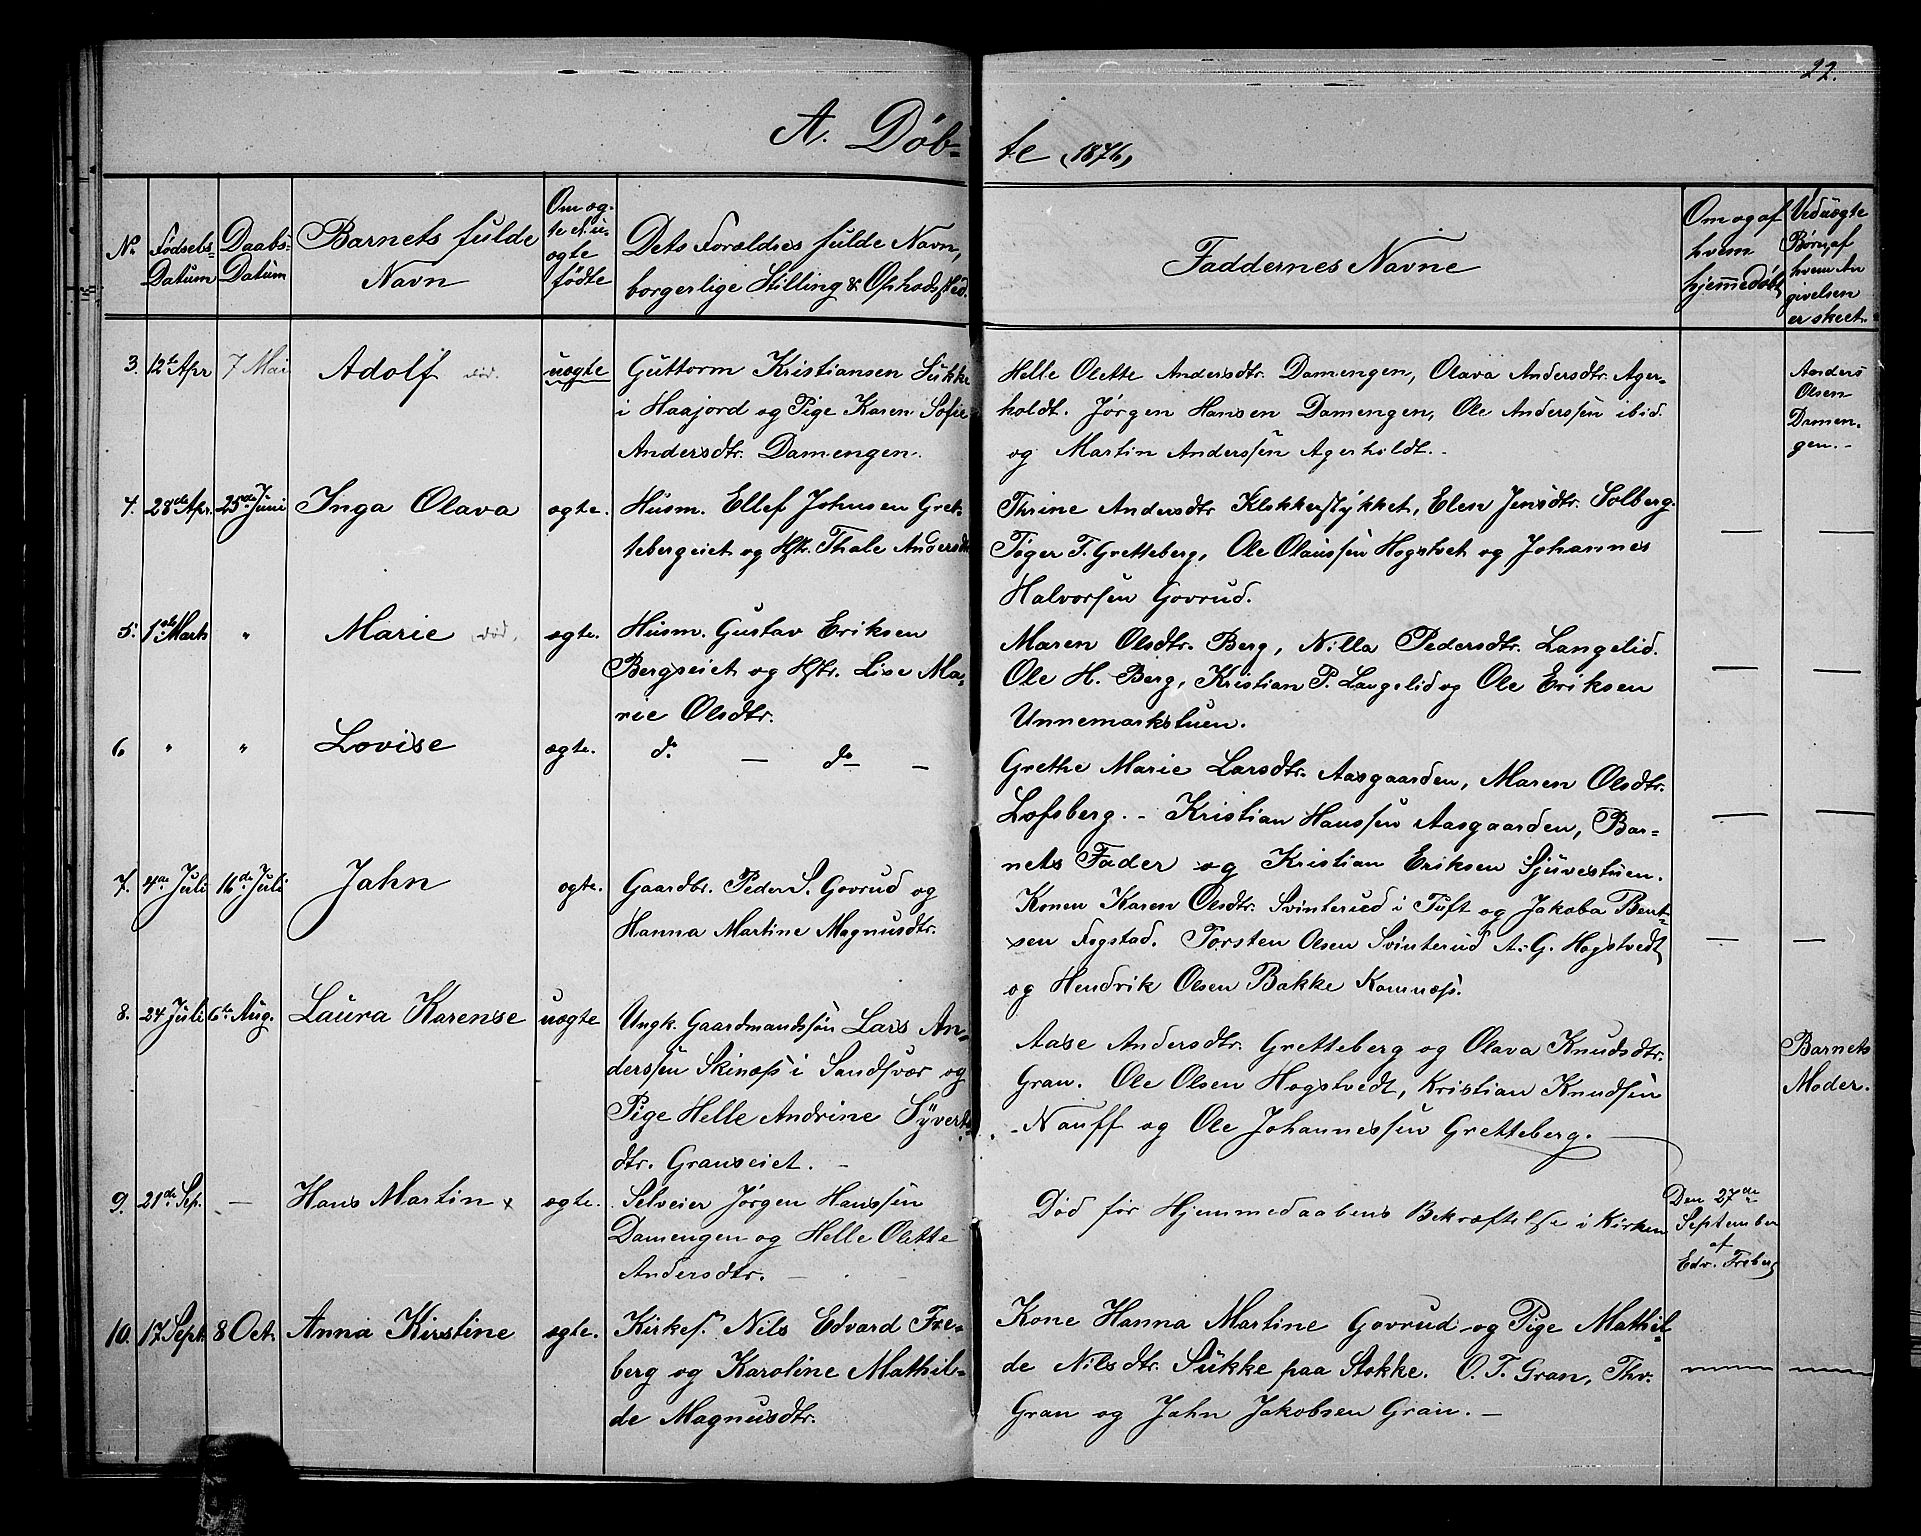 22.
A. Døb-
te (1876)
No
Fødsels-
Datum
Daabs-
Datum
Barnets fulde
Navn
Om æg-
te el. u-
ægte
fødte
Dets Forældres fulde Navn,
borgerlige Stilling & Opholdssted.
Faddernes Navne
Om og af
hvem
hjemmedøbt
Ved uægte
Børn, af
hvem An
givelsen
er skeet.
3. 12te Apr 7 Mai Adolf død. uægte Guttorm Kristiansen Sukke
i Haajord og Pige Karen Sofie
Andersdtr. Damengen.
Helle Olette Andersdtr. Damengen, Olava Andersdtr. Ager-
holdt. Jørgen Hansen Damengen, Ole Anderssen ibid.
og Martin Anderssen Agerholdt. -
Anders
Olsen
Damen-
gen. -
4. 28de Apr. 25de Juni Inga Olava ægte. Husm. Ellef Johnsen Gret-
tebergeiet og Hstr. Thale Andersdtr
Thrine Andersdtr Klokkerstykket, Elen Jensdtr. Solberg.
Tøger T. Gretteberg, Ole Olaussen Hogstvet og Johannes
Halvorsen Govrud.
— —
5. 1ste Marts " Marie død. ægte. Husm. Gustav Eriksen
Bergseiet og Hstr. Lise Ma-
rie Olsdtr.
Maren Olsdtr. Berg, Nilla Pedersdtr. Langelid.
Ole H. Berg, Kristian P. Langelid og Ole Eriksen
Unnemarkstuen.
— —
6 " " Lovise ægte. do — do —
Grethe Marie Larsdtr. Aasgaarden, Maren Olsdtr.
Lofsberg. - Kristian Hanssen Aasgaarden, Bar-
nets Fader og Kristian Eriksen Sjuvestuen.
— —
7. 4de Juli 16de Juli Jahn ægte. Gaardbr. Peder S. Govrud og
Hanna Martine Magnusdtr.
Konen Karen Olsdtr. Svinterud i Tuft og Jakoba Bent-
sen Fogstad. Torsten Olsen Svinterud A. G. Hogstvedt
og Hendrik Olsen Bakke Komnæs.
— —
8. 24 Juli 6te Aug. Laura Karense uægte Ungk. Gaardmandssøn Lars An-
derssen Skinæs i Sandsvær og
Pige Helle Andrine Syverts-
dtr. Granseiet. -
Aase Andersdtr. Gretteberg og Olava Knudsdtr.
Gran. Ole Olsen Hogstvedt, Kristian Knudsen
Nauff og Ole Johannessen Gretteberg.
Barnets
Moder.
9. 21de Sep. — Hans Martin x ægte. Selveier Jørgen Hanssen
Damengen og Helle Olette
Andersdtr. -
Død før Hjemmedaabens Bekræftelse i Kirken
Den 27de
September
af
Edv. Freberg
10. 17 Sept. 8 Oct. Anna Kirstine ægte. Kirkes. Nils Edvard Fre-
berg og Karoline Mathil-
de Magnusdtr.
Kone Hanna Martine Govrud og Pige Mathil-
de Nilsdtr. Sukke paa Stokke. O. T. Gran, Thv.
Gran og Jahn Jakobsen Gran. —